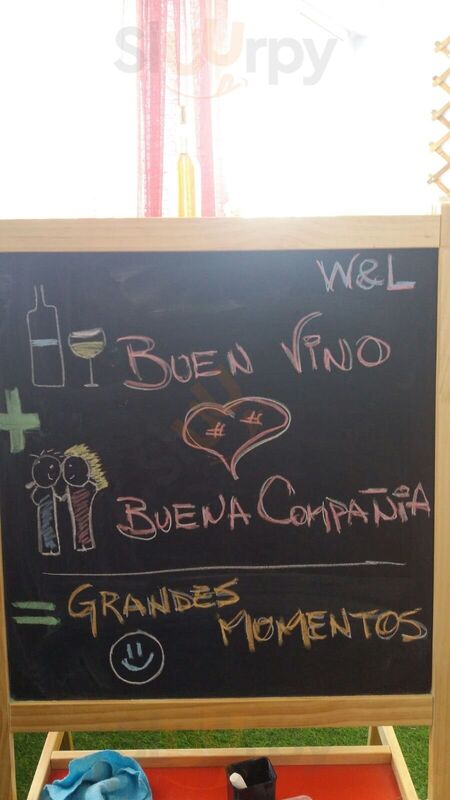 Sluurpy
W&L
BUEN VINO
+
# #
BUENA COMPAÑÍA
= GRANDES
MOMENTOS